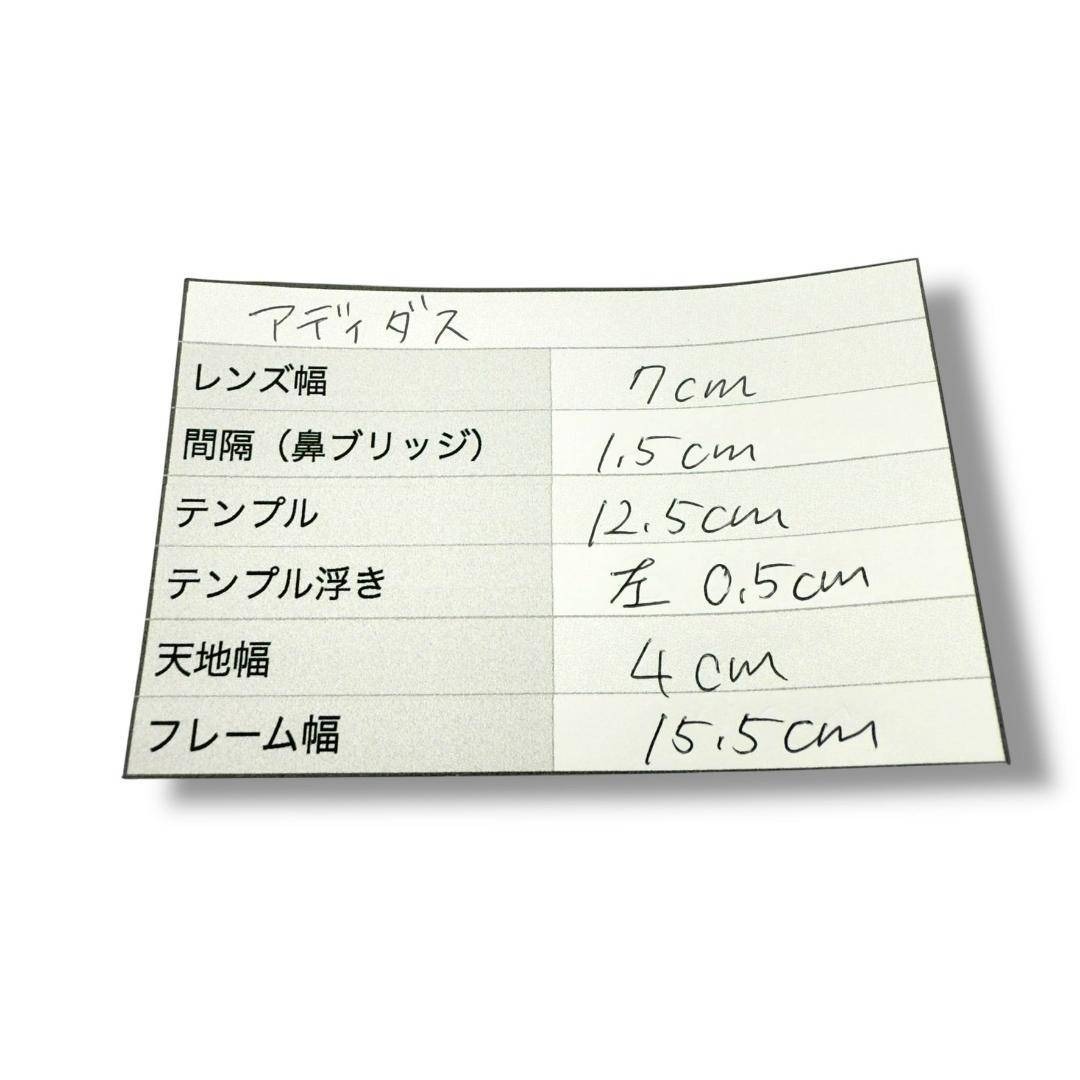 アディダス
レンズ幅 7cm
間隔（鼻ブリッジ） 1.5cm
テンプル 12.5cm
テンプル浮き 左 0.5cm
天地幅 4cm
フレーム幅 15.5cm